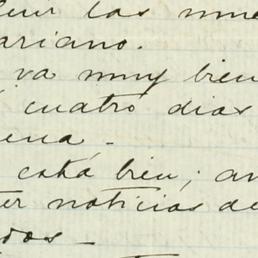 las
ariano.
va muy bien
cuatro dias
ena.
está bien; an
er noticias de
dos